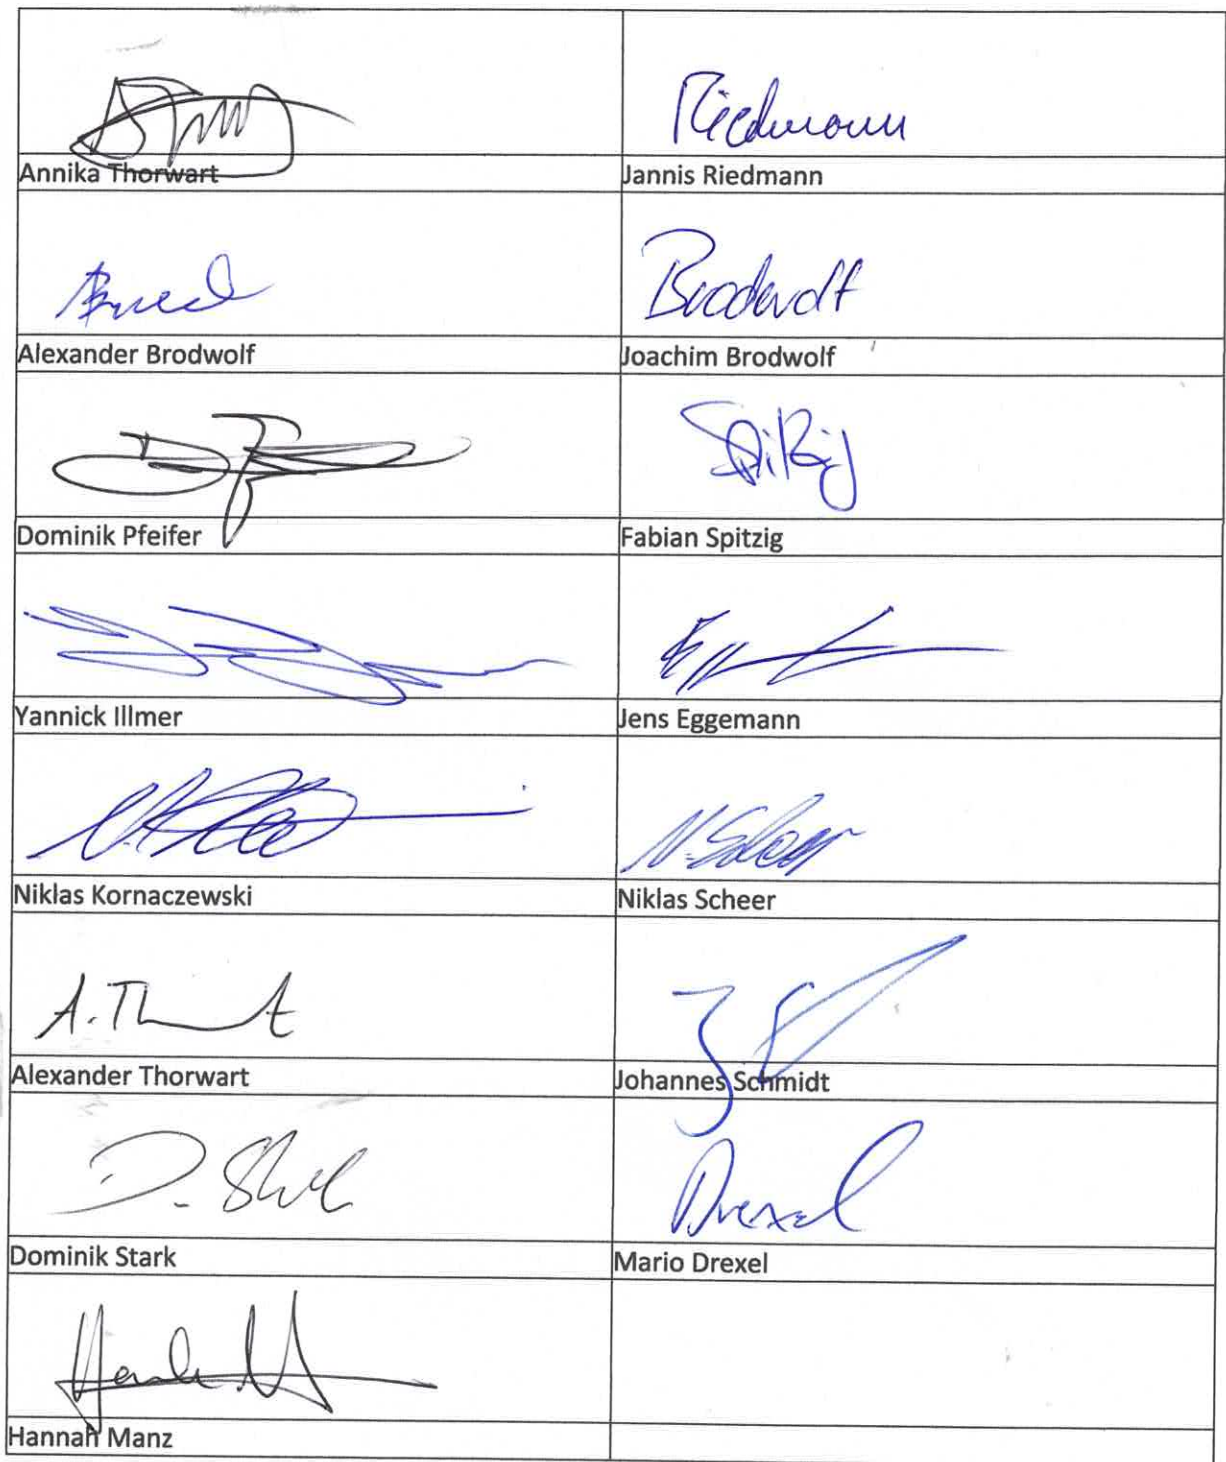 Riedmann
Annika Thorwart
Jannis Riedmann
Brodwolf
Alexander Brodwolf
Joachim Brodwolf
Spitzig
Dominik Pfeifer
Fabian Spitzig
Yannick Illmer
Jens Eggemann
N. Scheer
Niklas Kornaczewski
Niklas Scheer
Alexander Thorwart
Johannes Schmidt
Drexel
Dominik Stark
Mario Drexel
Hannah Manz